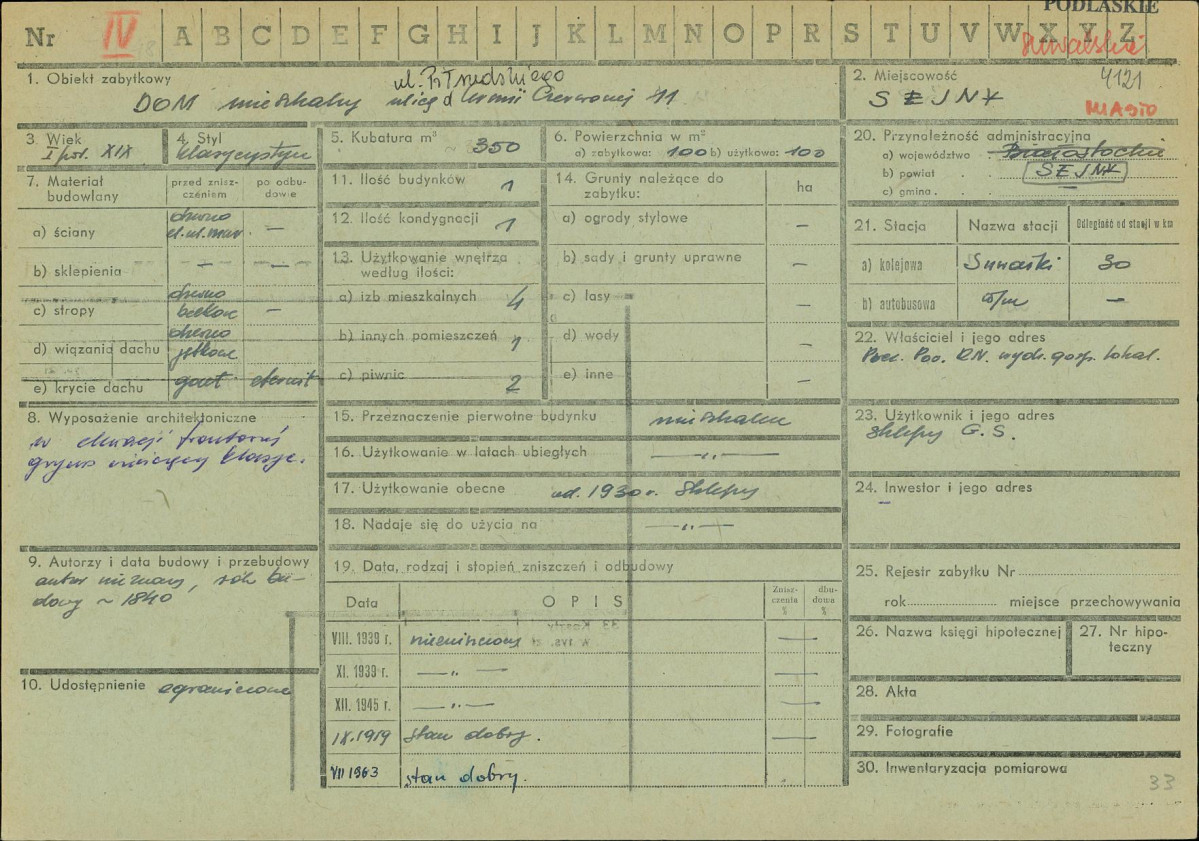 PODLASKIE
Nr IV A B C D E F G H I J K L M N O P R S T U V W X Y Z
Suwalskie
1. Obiekt zabytkowy
ul. Piłsudskiego
DOM mieszkalny ulica Armii Czerwonej 11
2. Miejscowość
4121
SEJNY
MIASTO
3. Wiek
I poł. XIX
4. Styl
klasycystyczn
5. Kubatura m³ ~ 350
6. Powierzchnia w m²
a) zabytkowa: 100 b) użytkowa: 100
7. Materiał budowlany
przed zniszczeniem
po odbudowie
a) ściany
drewno
ci. ul. mur. —
b) sklepienia — —
c) stropy
drewno
belkow —
d) wiązania dachu
drewno
jętkowe
e) krycie dachu gont. eternit
8. Wyposażenie architektoniczne
w elewacji frontowej
gzyms wieńczący klasyc.
9. Autorzy i data budowy i przebudowy
autor nieznany, rok bu-
dowy ~ 1840
10. Udostępnienie ograniczone
11. Ilość budynków 1
12. Ilość kondygnacji 1
13. Użytkowanie wnętrza
według ilości:
a) izb mieszkalnych 4
b) innych pomieszczeń 1
c) piwnic 2
14. Grunty należące do
zabytku:
ha
a) ogrody stylowe —
b) sady i grunty uprawne —
c) lasy —
d) wody —
e) inne —
15. Przeznaczenie pierwotne budynku mieszkalne
16. Użytkowanie w latach ubiegłych —„—
17. Użytkowanie obecne od. 1930 r. Sklepy
18. Nadaje się do użycia na —„—
19. Data, rodzaj i stopień zniszczeń i odbudowy
Data
OPIS
Zniszczenia %
dbudowa %
VIII. 1939 r. niezniszczony —
XI. 1939 r. —„— —
XII. 1945 r. —„— —
IX.1959 stan dobry. —
VII 1963 stan dobry.
20. Przynależność administracyjna
a) województwo Białostockie
b) powiat SEJNY
c) gmina
21. Stacja
Nazwa stacji
Odległość od stacji w km
a) kolejowa Suwałki 30
b) autobusowa w/m —
22. Właściciel i jego adres
Prez. Pow. R.N. wydz. gosp. lokal.
23. Użytkownik i jego adres
Sklepy G. S.
24. Inwestor i jego adres
—
25. Rejestr zabytku Nr
rok miejsce przechowywania
26. Nazwa księgi hipotecznej
27. Nr hipoteczny
28. Akta
29. Fotografie
30. Inwentaryzacja pomiarowa
33